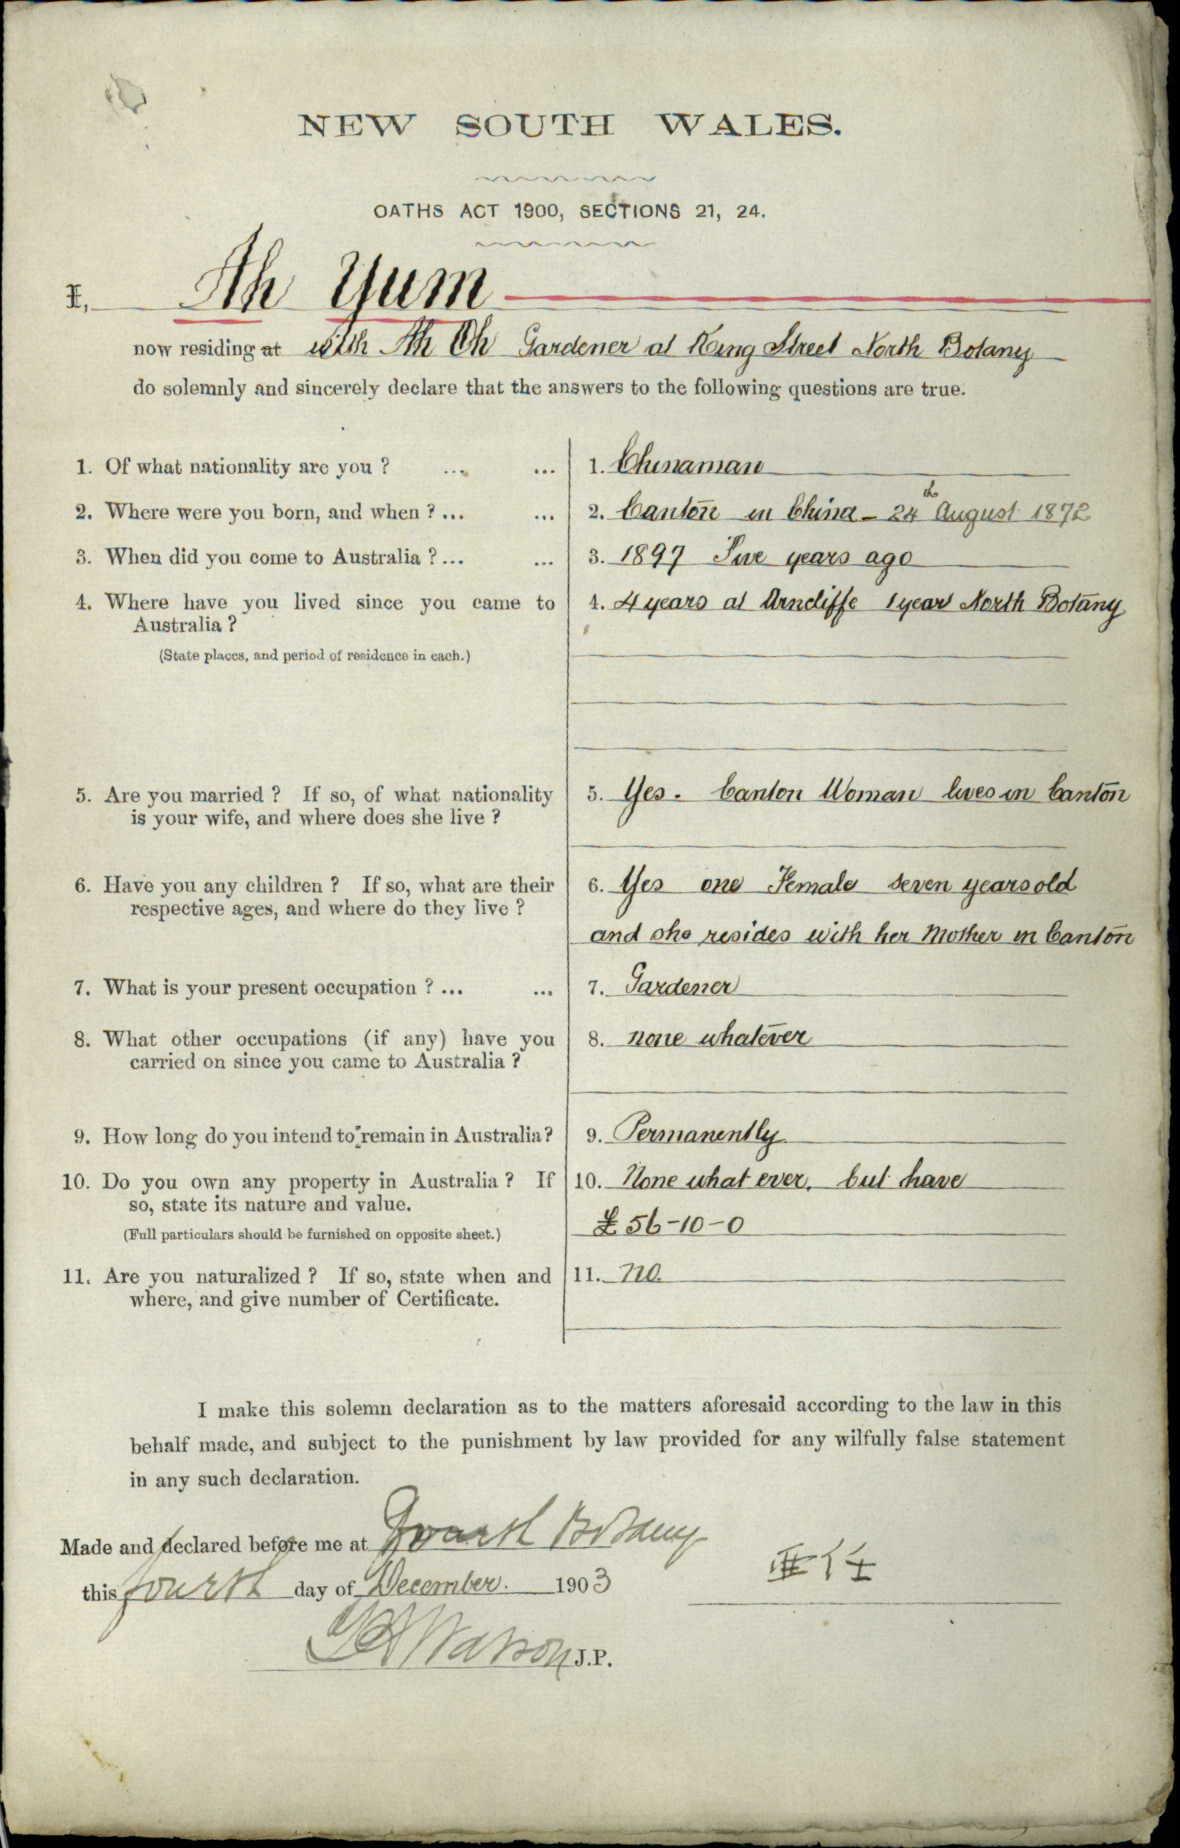 NEW SOUTH WALES.
OATHS ACT 1900, SECTIONS 21, 24.
I, Ah Yum
now residing at with Ah Oh Gardener at King Street North Botany
do solemnly and sincerely declare that the answers to the following questions are true.
1. Of what nationality are you ? ... ... 1. Chinaman
2. Where were you born, and when ? ... ... 2. Canton in China - 24th August 1872
3. When did you come to Australia ? ... ... 3. 1897 Five years ago
4. Where have you lived since you came to 4. 4 years at Arncliffe 1 year North Botany
Australia ?
(State places, and period of residence in each.)
5. Are you married ? If so, of what nationality 5. Yes. Canton Woman lives in Canton
is your wife, and where does she live ?
6. Have you any children ? If so, what are their 6. Yes one Female seven years old
respective ages, and where do they live ? and she resides with her Mother in Canton
7. What is your present occupation ? ... ... 7. Gardener
8. What other occupations (if any) have you 8. none whatever
carried on since you came to Australia ?
9. How long do you intend to remain in Australia? 9. Permanently
10. Do you own any property in Australia ? If 10. None what ever. but have
so, state its nature and value. £56-10-0
(Full particulars should be furnished on opposite sheet.)
11. Are you naturalized ? If so, state when and 11. No.
where, and give number of Certificate.
I make this solemn declaration as to the matters aforesaid according to the law in this
behalf made, and subject to the punishment by law provided for any wilfully false statement
in any such declaration.
Made and declared before me at North Botany
this fourth day of December. 1903
Watson J.P.